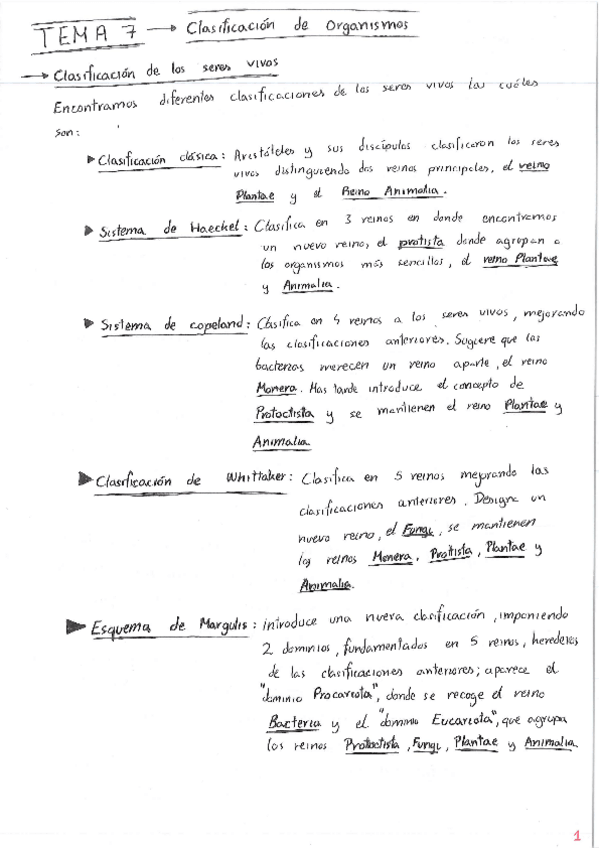 TEMA 7 → Clasificación de Organismos
→ Clasificación de los seres vivos
Encontramos diferentes clasificaciones de los seres vivos las cuáles
son:
▶ Clasificación clásica: Aristóteles y sus discípulos clasificaron los seres
vivos distinguiendo dos reinos principales, el reino
Plantae y el Reino Animalia.
▶ Sistema de Haeckel: Clasifica en 3 reinos en donde encontramos
un nuevo reino, el protista donde agrupan a
los organismos más sencillos, el reino Plantae
y Animalia.
▶ Sistema de copeland: Clasifica en 4 reinos a los seres vivos, mejorando
las clasificaciones anteriores. Sugiere que las
bacterias merecen un reino aparte, el reino
Monera. Mas tarde introduce el concepto de
Protoctista y se mantienen el reino Plantae y
Animalia
▶ Clasificación de Whittaker: Clasifica en 5 reinos mejorando las
clasificaciones anteriores. Designa un
nuevo reino, el Fungi, se mantienen
los reinos Monera, Protista, Plantae y
Animalia.
▶ Esquema de Margulis: introduce una nueva clasificación, imponiendo
2 dominios, fundamentados en 5 reinos, herederos
de las clasificaciones anteriores; aparece el
"dominio Procariota", donde se recoge el reino
Bacteria y el "dominio Eucariota", que agrupa
los reinos Protoctista, Fungi, Plantae y Animalia
1